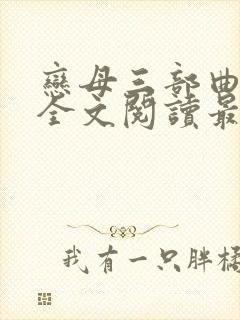 戀母三部曲
全文閱讀最
我有一只胖橘